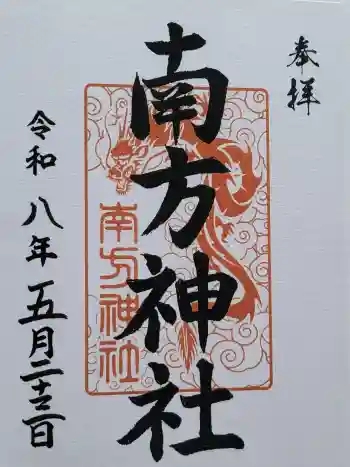 奉拝
南方神社
南方神社
令和八年五月二十三日